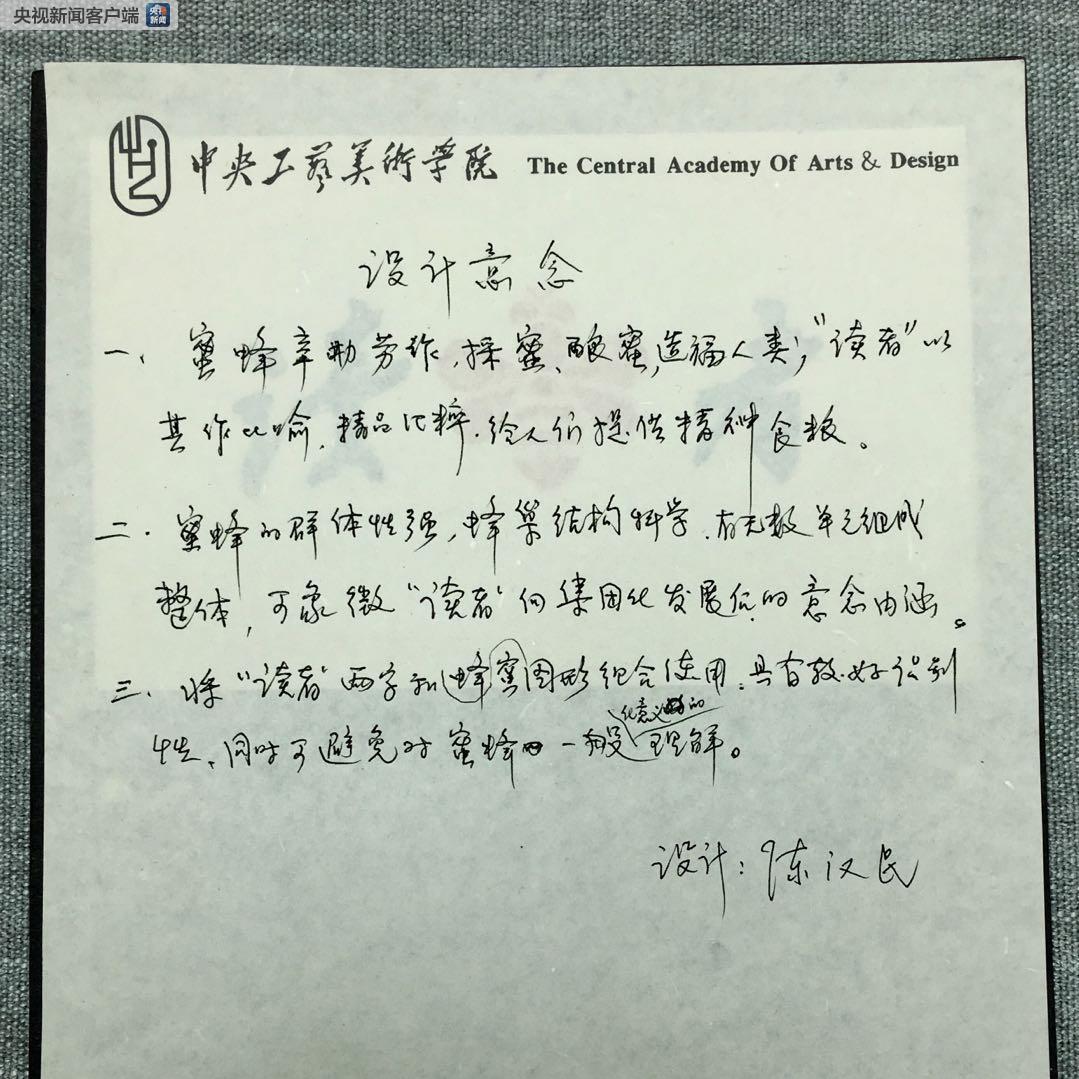 央视新闻客户端 央视新闻
中央工艺美術学院 The Central Academy Of Arts & Design
设计意念
一、蜜蜂辛勤劳作,採蜜、酿蜜,造福人类;"读者"以
其作比喻,精品比粹.给人们提供精神食粮。
二.蜜蜂的群体性强,蜂巢结构科学.有无数单元组成
整体,可象徵"读者"向集团化发展的意念内涵。
三.将"读者"两字和蜂蜜图形组合使用.具有较好识别
性、同时可避免对蜜蜂一般化意义的理解。
设计:陈汉民